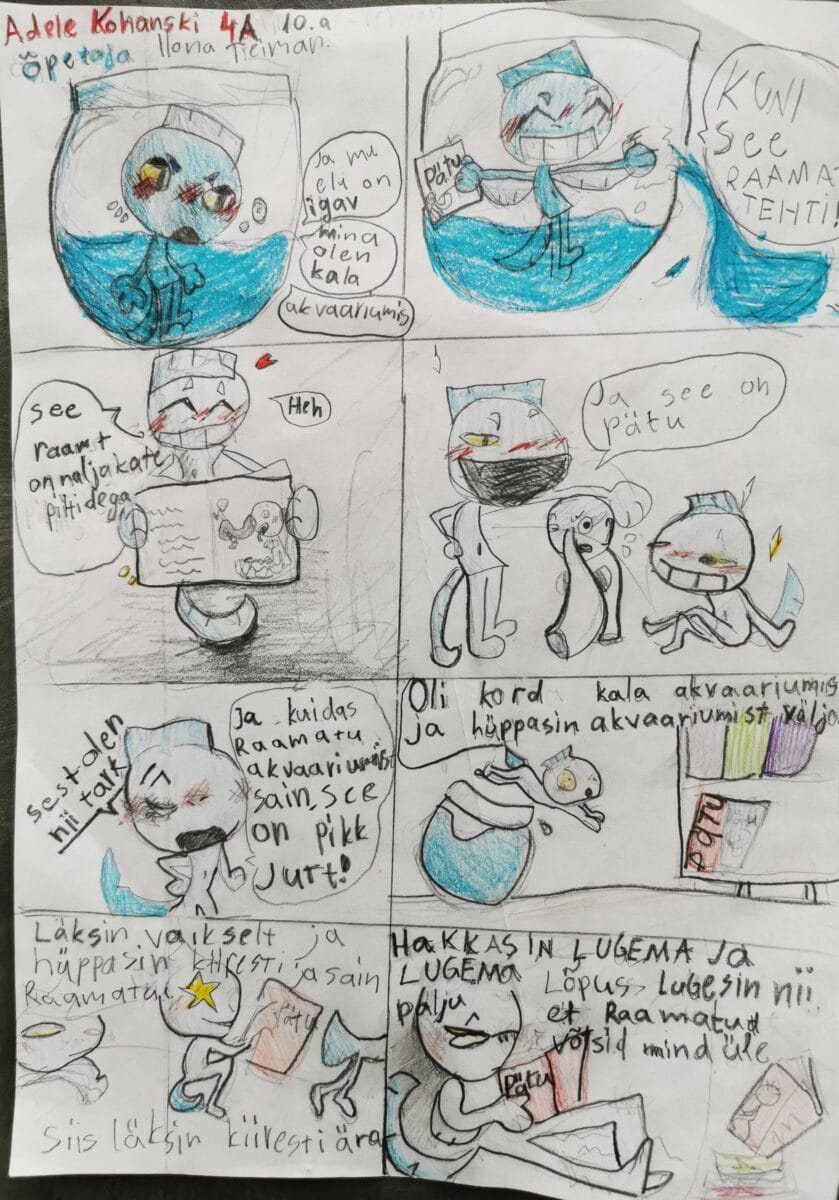 Adele Kohanski 4A 10.a
Õpetaja Ilona Tieiman.
Ja mu
elu on
igav
mina
olen
kala
akvaariumis
Pätu
KUNI
SEE
RAAMAT
TEHTI!
see
raamt
on naljakate
piltidega
Heh
Ja see on
pätu
sest olen
nii tark
Ja kuidas
Raamatu
akvaariumist
sain, see
on pikk
jurt!
Oli kord kala akvaariumis
ja hüppasin akvaariumist välja
PÄTU
Läksin vaikselt ja
hüppasin kiiresti ja sain
Raamatu
Pätu
siis läksin kiiresti ära
HAKKASIN LUGEMA JA
LUGEMA
Lõpus lugesin nii
palju et Raamatud
võtsid mind üle
Pätu